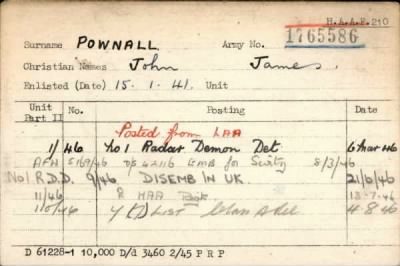 H.A.A.F. 210
Surname POWNALL Army No. 1765586
Christian Names John James.
Enlisted (Date) 15. 1. 41. Unit
Unit Part II No. Posting Date
Posted from LAA
1/46 No 1 Radar Demon Det. 6 Mar 46
AFH 5169/46 for 8/3/46
No1 R.D.D. 9/46 DISEMB IN UK. 21/6/46
11/46 HAA 13-7-46
Y List 4.8.46
D 61228-1 10,000 D/d 3460 2/45 P R P